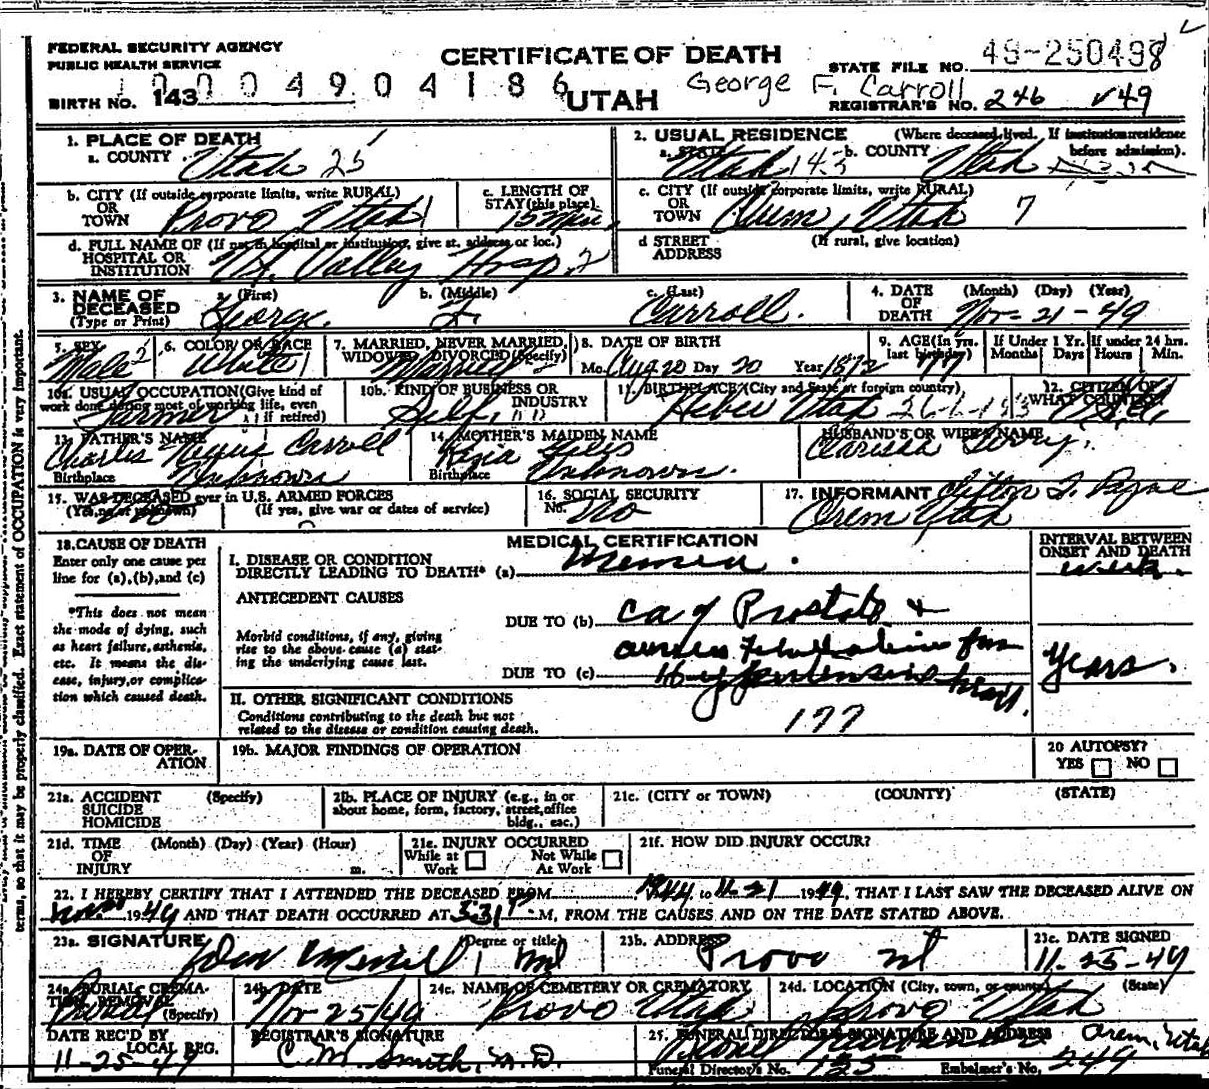 FEDERAL SECURITY AGENCY
PUBLIC HEALTH SERVICE
CERTIFICATE OF DEATH
UTAH
STATE FILE NO. 49-250498
1 0 0 0 4 9 0 4 1 8 6
BIRTH NO. 143
George F. Carroll
REGISTRAR'S NO. 246 v49
1. PLACE OF DEATH
a. COUNTY Utah 25
2. USUAL RESIDENCE (Where deceased lived. If institution: residence before admission).
a. STATE Utah 143 b. COUNTY Utah
b. CITY (If outside corporate limits, write RURAL)
OR
TOWN Provo Utah
c. LENGTH OF
STAY (this place) 15 Min
c. CITY (If outside corporate limits, write RURAL)
OR
TOWN Orem, Utah 7
d. FULL NAME OF (If not in hospital or institution, give st. address or loc.)
HOSPITAL OR
INSTITUTION Ut. Valley Hosp. 2
d STREET (If rural, give location)
ADDRESS
3. NAME OF
DECEASED
(Type or Print)
a. (First) George
b. (Middle) F.
c. (Last) Carroll
4. DATE (Month) (Day) (Year)
OF
DEATH Nov- 21 - 49
5. SEX Male 2
6. COLOR OR RACE White
7. MARRIED, NEVER MARRIED,
WIDOWED, DIVORCED (Specify) Married
8. DATE OF BIRTH
Mo. Aug 20 Day 20 Year 1872
9. AGE (In yrs. last birthday) 77
If Under 1 Yr. Months Days
If under 24 hrs. Hours Min.
10a. USUAL OCCUPATION (Give kind of
work done during most of working life, even
if retired) Farmer
10b. KIND OF BUSINESS OR
INDUSTRY Self
11. BIRTHPLACE (City and State or foreign country)
Heber Utah
12. CITIZEN OF
WHAT COUNTRY? U.S.A.
13. FATHER'S NAME
Charles Carroll
Birthplace Unknown
14. MOTHER'S MAIDEN NAME
Kezia Giles
Birthplace Unknown.
HUSBAND'S OR WIFE'S NAME
Clarissa
15. WAS DECEASED ever in U.S. ARMED FORCES
(Yes, no or unknown) No (If yes, give war or dates of service)
16. SOCIAL SECURITY
No. No
17. INFORMANT Clifton
Orem Utah
18. CAUSE OF DEATH
Enter only one cause per
line for (a), (b), and (c)
*This does not mean
the mode of dying, such
as heart failure, asthenia,
etc. It means the dis-
ease, injury, or complica-
tion which caused death.
MEDICAL CERTIFICATION
INTERVAL BETWEEN
ONSET AND DEATH
I. DISEASE OR CONDITION
DIRECTLY LEADING TO DEATH* (a) Uremia. week.
ANTECEDENT CAUSES
Morbid conditions, if any, giving
rise to the above cause (a) stat-
ing the underlying cause last.
DUE TO (b) Ca of Prostate +
DUE TO (c) Hypertensive heart.
Years.
177
II. OTHER SIGNIFICANT CONDITIONS
Conditions contributing to the death but not
related to the disease or condition causing death.
19a. DATE OF OPER-
ATION
19b. MAJOR FINDINGS OF OPERATION
20 AUTOPSY?
YES NO
21a. ACCIDENT (Specify)
SUICIDE
HOMICIDE
21b. PLACE OF INJURY (e.g., in or
about home, form, factory, street, office
bldg., eac.)
21c. (CITY or TOWN) (COUNTY) (STATE)
21d. TIME (Month) (Day) (Year) (Hour)
OF
INJURY m.
21e. INJURY OCCURRED
While at Work Not While At Work
21f. HOW DID INJURY OCCUR?
22. I HEREBY CERTIFY THAT I ATTENDED THE DECEASED FROM 1944, to 11-21 1949, THAT I LAST SAW THE DECEASED ALIVE ON
1949 AND THAT DEATH OCCURRED AT 5:31 P M, FROM THE CAUSES AND ON THE DATE STATED ABOVE.
23a. SIGNATURE Merrill (Degree or title) MD
23b. ADDRESS Provo Ut
23c. DATE SIGNED 11-25-49
24a. BURIAL, CREMA-
TION, REMOVAL
(Specify) Burial
24b. DATE Nov 25/49
24c. NAME OF CEMETERY OR CREMATORY
Provo Utah
24d. LOCATION (City, town, or county) (State)
Provo Utah
DATE REC'D BY
LOCAL REG.
11-25-49
REGISTRAR'S SIGNATURE
C. M. Smith, M.D.
25. FUNERAL DIRECTOR'S SIGNATURE AND ADDRESS Orem, Utah
Funeral Director's No. 125 Embalmer's No. 249
terms, so that it may be properly classified. Exact statement of OCCUPATION is very important.